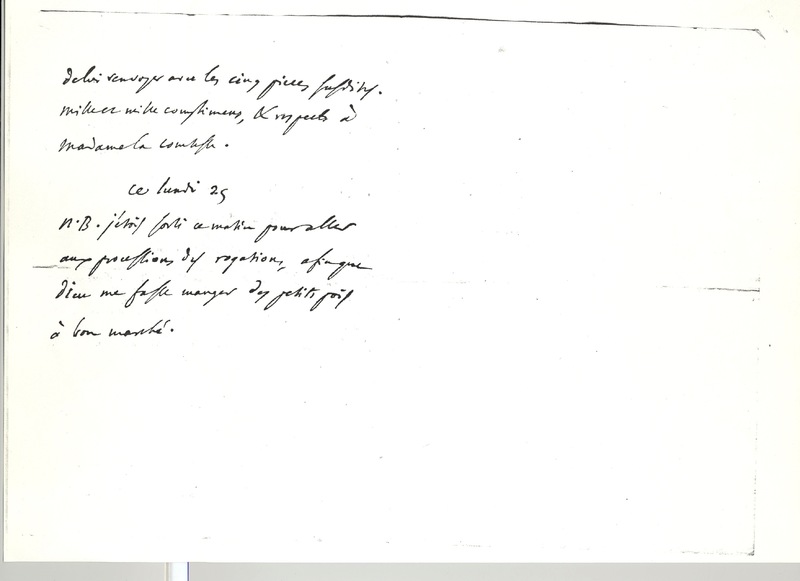 de lui renvoyer avec les cinq pieces susdites.
mille et mille complimens, & respects à
madame la comtesse.
ce lundi 25
N.B. j'étois sorti ce matin pour aller
aux processions des rogations, afinque
dieu me fasse manger des petits pois
à bon marché.